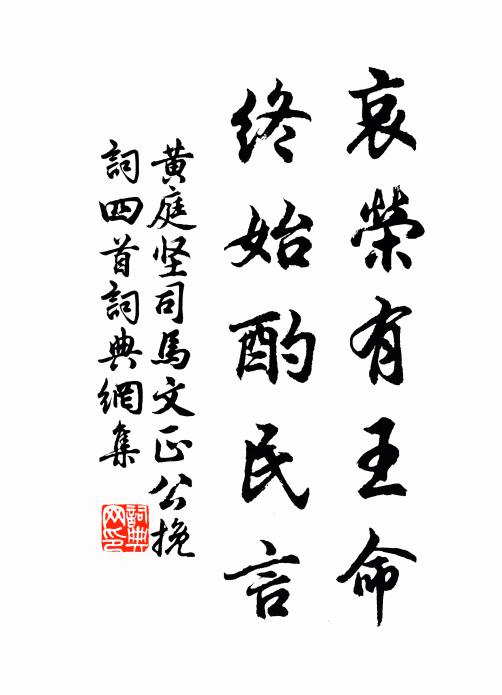 哀榮有王命
終始酌民言
黄庭坚司馬文正公挽
詞四首詞典網集
詞典网印